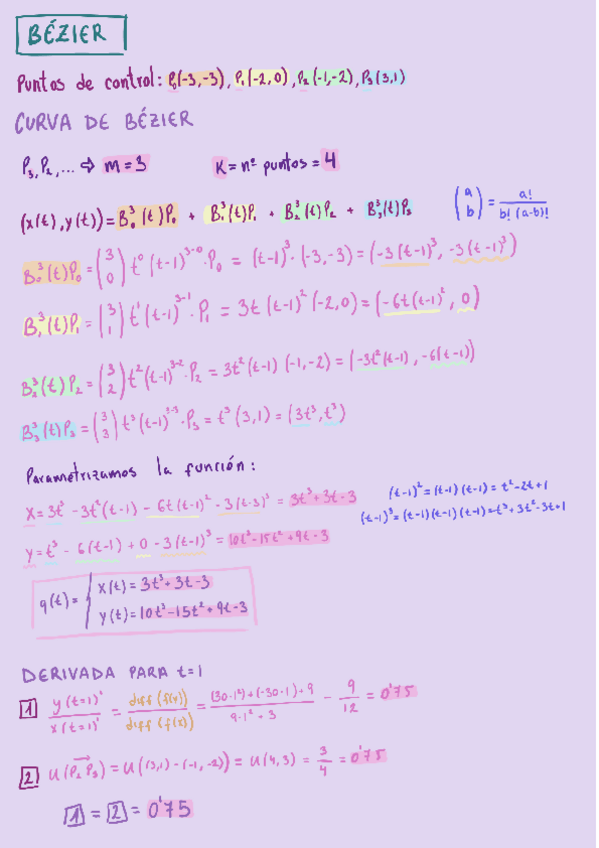 BÉZIER
Puntos de control: P₀(-3,-3), P₁(-2,0), P₂(-1,-2), P₃(3,1)
CURVA DE BÉZIER
P₃, P₂, ... ⇨ m=3 K = nº puntos = 4
(x(t), y(t)) = B₀³(t)P₀ + B₁³(t)P₁ + B₂³(t)P₂ + B₃³(t)P₃ (a b) = a! / b! (a-b)!
B₀³(t)P₀ = (3 0) t⁰ (t-1)³⁻⁰·P₀ = (t-1)³·(-3,-3) = (-3(t-1)³, -3(t-1)³)
B₁³(t)P₁ = (3 1) t¹(t-1)³⁻¹·P₁ = 3t(t-1)²(-2,0) = (-6t(t-1)², 0)
B₂³(t)P₂ = (3 2) t²(t-1)³⁻²·P₂ = 3t²(t-1)(-1,-2) = (-3t²(t-1), -6(t-1))
B₃³(t)P₃ = (3 3) t³(t-1)³⁻³·P₃ = t³(3,1) = (3t³, t³)
Parametrizamos la función:
x = 3t³ - 3t²(t-1) - 6t(t-1)² - 3(t-3)³ = 3t³+3t-3 (t-1)² = (t-1)(t-1) = t²-2t+1
y = t³ - 6(t-1) + 0 - 3(t-1)³ = 10t³-15t²+9t-3 (t-1)³ = (t-1)(t-1)(t-1) = t³+3t²-3t+1
q(t) = { x(t) = 3t³+3t-3
y(t) = 10t³-15t²+9t-3
DERIVADA PARA t=1
1 y(t=1)' / x(t=1)' = diff (f(y)) / diff (f(x)) = (30·1²)+(-30·1)+9 / 9·1²+3 - 9/12 = 0'75
2 U(P₂P₃) = U((3,1)-(-1,-2)) = U(4,3) = 3/4 = 0'75
1 = 2 = 0'75